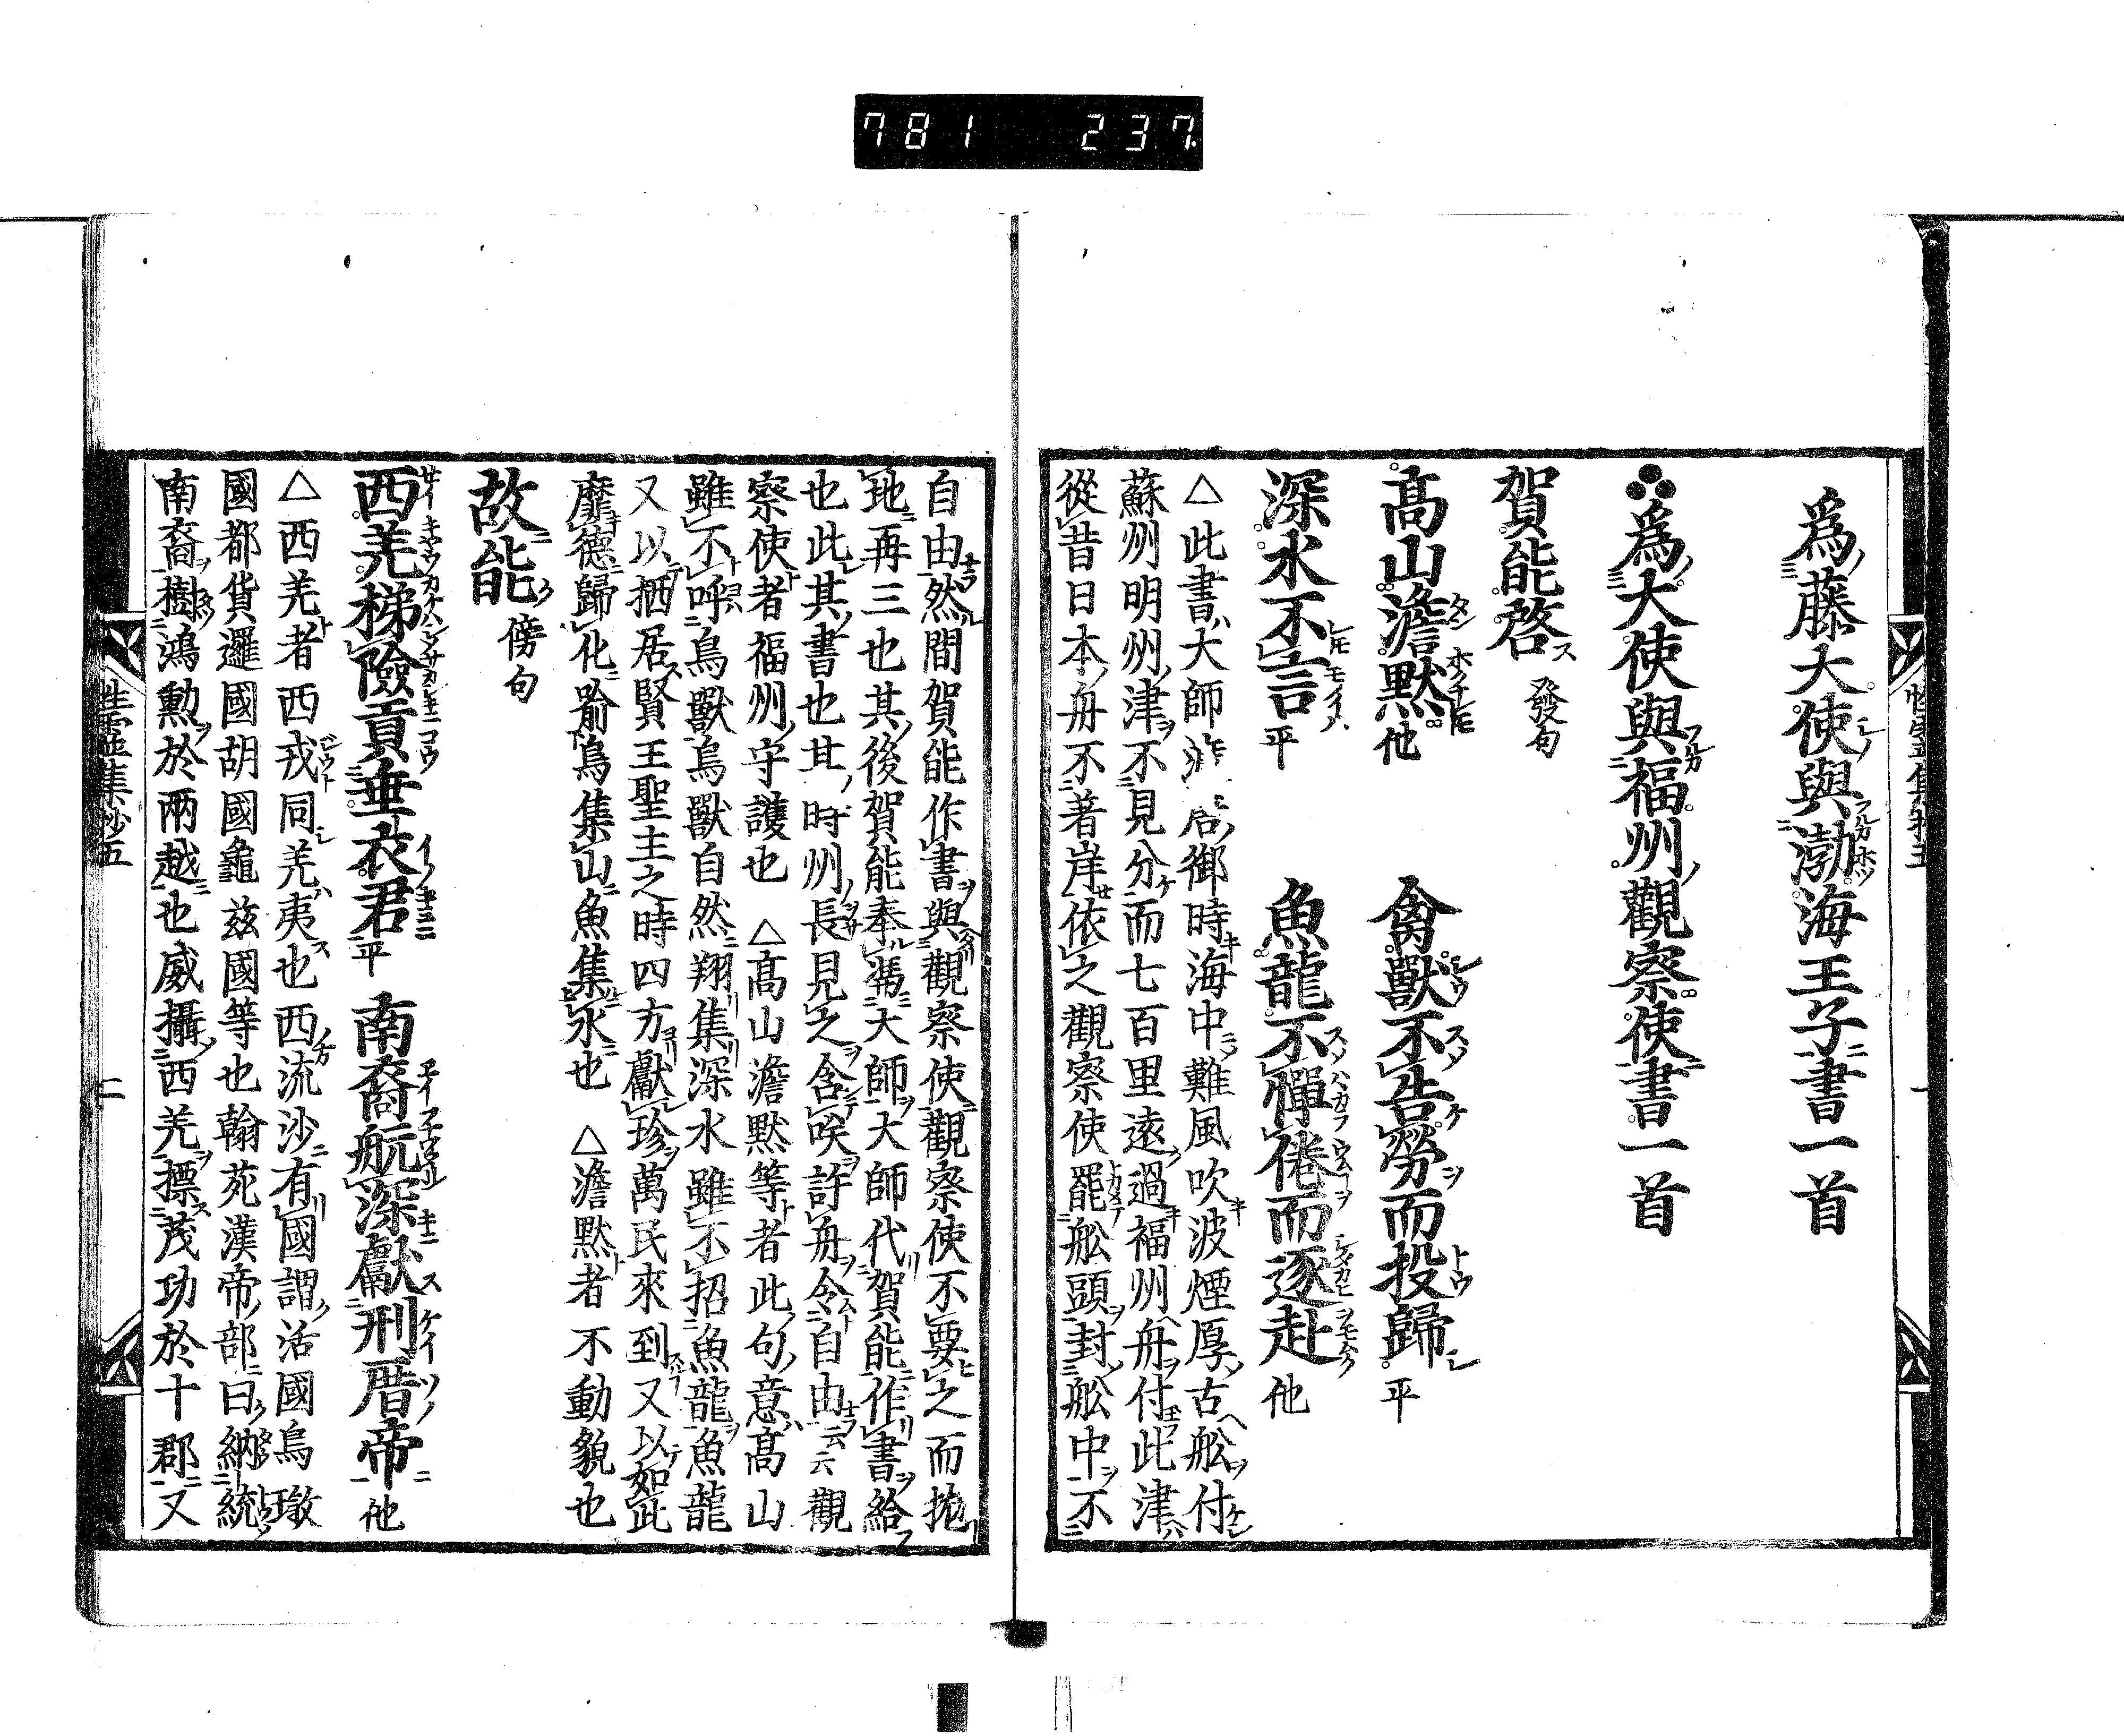 781 237
爲藤大使與渤海王子書一首
爲大使與福州觀察使書一首
賀能啓 發句
髙山澹黙 他 禽獸不告勞而投歸 平
深水不言 平 魚龍不憚倦而逐赴 他
△此書大師 御時海中難風吹波煙厚古舩付
蘇州明州津不見分而七百里遠過福州舟付此津
從昔日本舟不著岸依之觀察使罷舩頭封舩中不
自由然間賀能作書與觀察使觀察使不要之而抛
地再三也其後賀能奉憑大師大師代賀能作書給
也此其書也其時州長見之含咲許舟令自由云云觀
察使者福州守護也 △髙山澹黙等者此句意髙山
雖不呼鳥獸鳥獸自然翔集深水雖不招魚龍魚龍
又以栖居賢王聖主之時四方獻珍萬民來到又以如此
靡德歸化喩鳥集山魚集水也 △澹黙者不動貌也
故能 傍句
西羌梯險貢垂衣君 平 南裔航深獻刑厝帝 他
△西羌者西戎同羌夷也西流沙有國謂活國烏㻻
國都貨邏國胡國龜玆國等也翰苑漢帝部曰納統
南裔樹鴻勲於兩越也威攝西羌摽茂功於十郡又
性靈集抄五 二